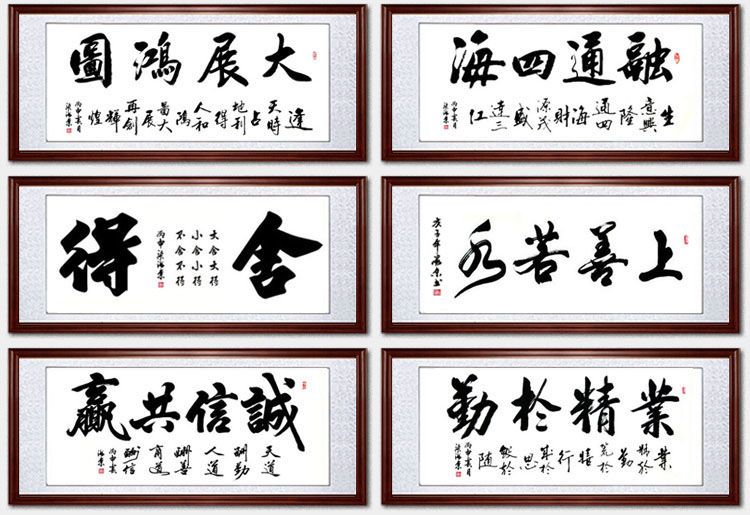 大展鴻圖
逢天時占地利得人和鴻圖大展再創輝煌
丙申
融通四海
生意興隆通四海財源茂盛達三江
丙申
舍得
大舍大得
小舍小得
不舍不得
丙申
上善若水
庚子年
誠信共贏
天道酬勤人道酬善商道酬信
丙申
業精於勤
業精於勤荒於嬉行成於思毀於隨
丙申